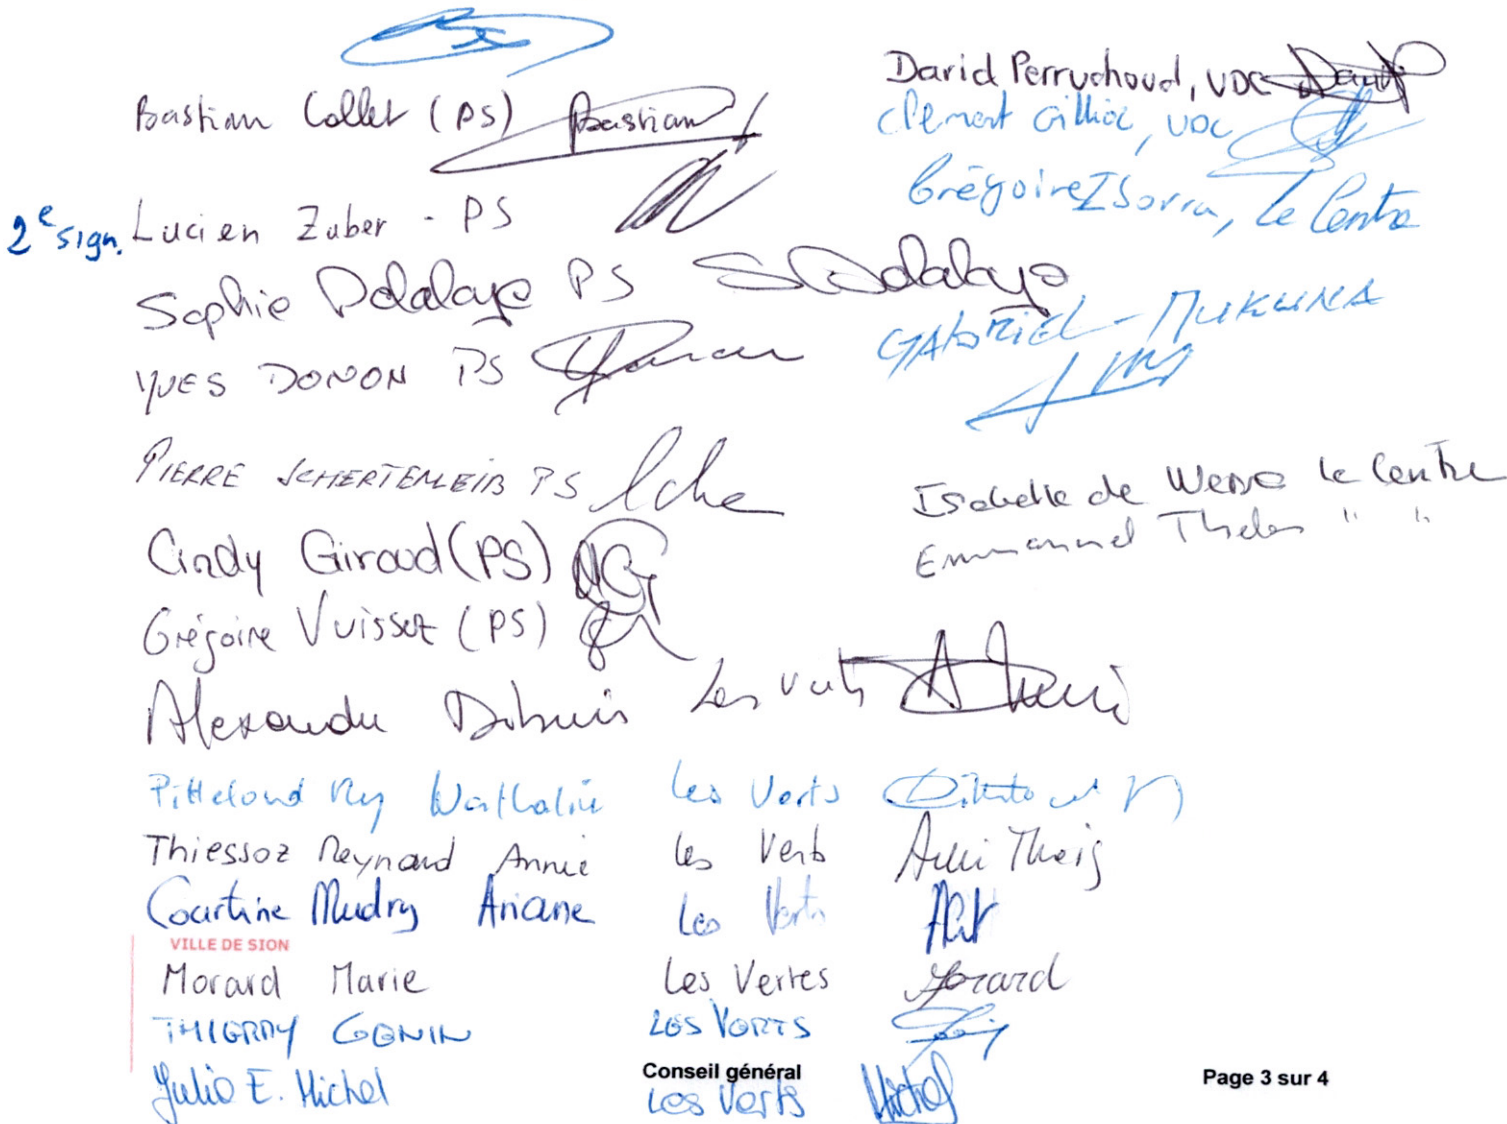 Bastian Collet (PS) Bastian
2e sign. Lucien Zuber - PS
Sophie Dalalaye PS SDalalaye
YVES DONON PS
PIERRE SCHERTENLEIB PS
Cindy Giroud (PS)
Grégoire Vuissoz (PS)
Alexandre Dubuis Les Verts
Pitteloud Rey Nathalie Les Verts
Thiessoz Reynard Annie Les Verts
Courtine Mudry Ariane Les Verts
VILLE DE SION
Morard Marie Les Vertes Morard
THIERRY GENIN LES VERTS
Julie E. Michel Les Verts Michel
David Perruchoud, UDC David
Clément Gillioz, UDC
Grégoire Isorra, Le Centre
GABRIEL - MUKUNA
Isabelle de Le Centre
Emmanuel Theler " "
Conseil général
Page 3 sur 4